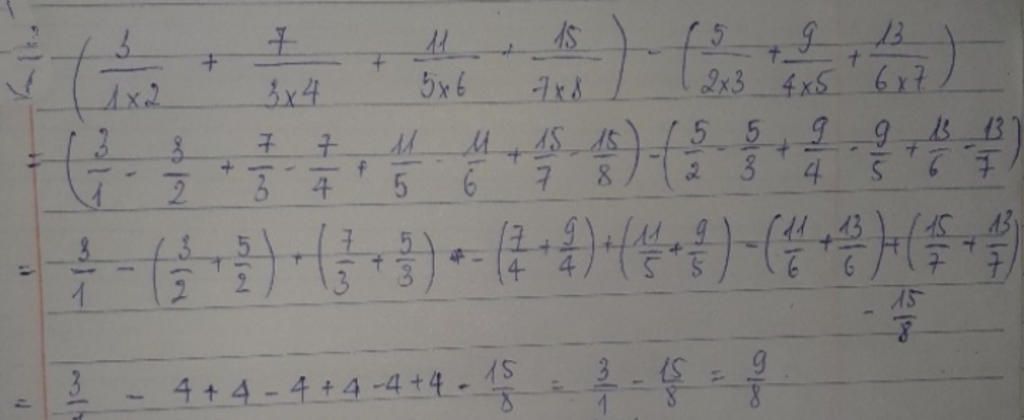 ( 3/1×2 + 7/3×4 + 11/5×6 + 15/7×8 ) - ( 5/2×3 + 9/4×5 + 13/6×7 )
= ( 3/1 - 3/2 + 7/3 - 7/4 + 11/5 - 11/6 + 15/7 - 15/8 ) - ( 5/2 - 5/3 + 9/4 - 9/5 + 13/6 - 13/7 )
= 3/1 - ( 3/2 + 5/2 ) + ( 7/3 + 5/3 ) - ( 7/4 + 9/4 ) + ( 11/5 + 9/5 ) - ( 11/6 + 13/6 ) + ( 15/7 + 13/7 )
- 15/8
= 3/1 - 4 + 4 - 4 + 4 - 4 + 4 - 15/8 = 3/1 - 15/8 = 9/8